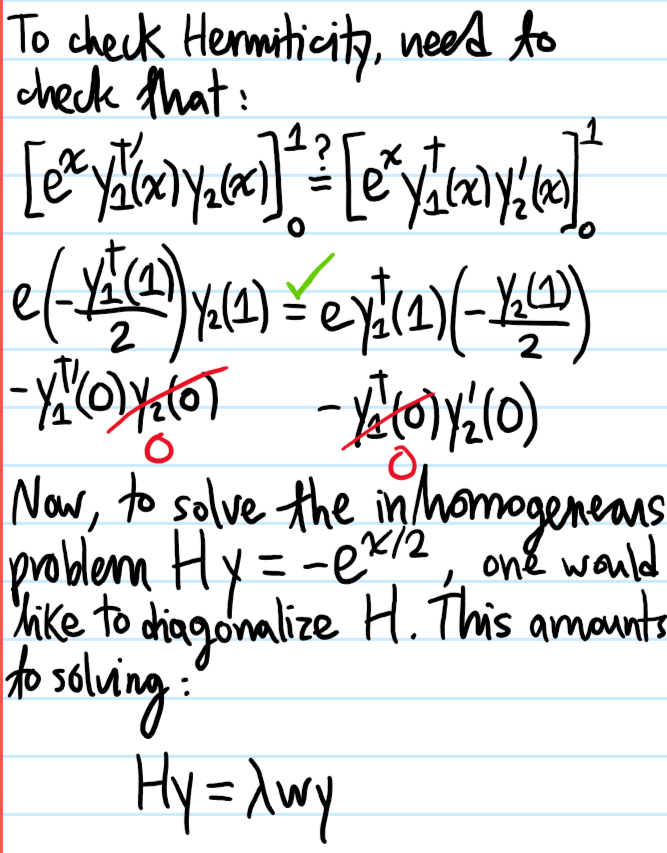 To check Hermiticity, need to
check that:
[eˣ y₁†′(x) y₂(x)]₀¹ ≟ [eˣ y₁†(x) y₂′(x)]₀¹
e(-y₁†(1)/2) y₂(1) =✓ e y₁†(1) (-y₂(1)/2)
-y₁†′(0) y₂(0) - y₁†(0) y₂′(0)
0 0
Now, to solve the inhomogeneous
problem Hy = -e^{x/2}, one would
like to diagonalize H. This amounts
to solving:
Hy = λwy